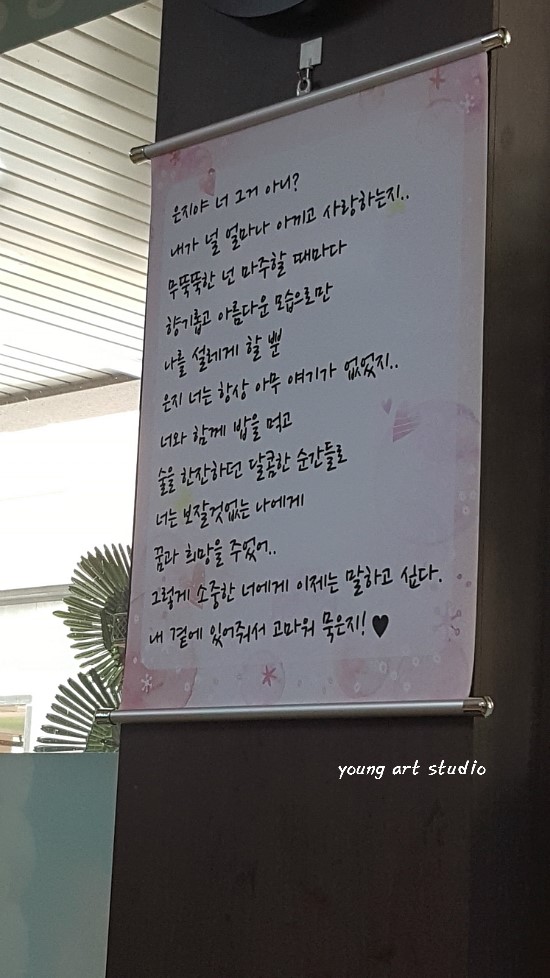 은지야 너 그거 아니?
내가 널 얼마나 아끼고 사랑하는지..
무뚝뚝한 넌 마주할 때마다
향기롭고 아름다운 모습으로만
나를 설레게 할 뿐
은지 너는 항상 아무 얘기가 없었지..
너와 함께 밥을 먹고
술을 한잔하던 달콤한 순간들로
너는 보잘것없는 나에게
꿈과 희망을 주었어..
그렇게 소중한 너에게 이제는 말하고 싶다.
내 곁에 있어줘서 고마워 묵은지!♥
young art studio